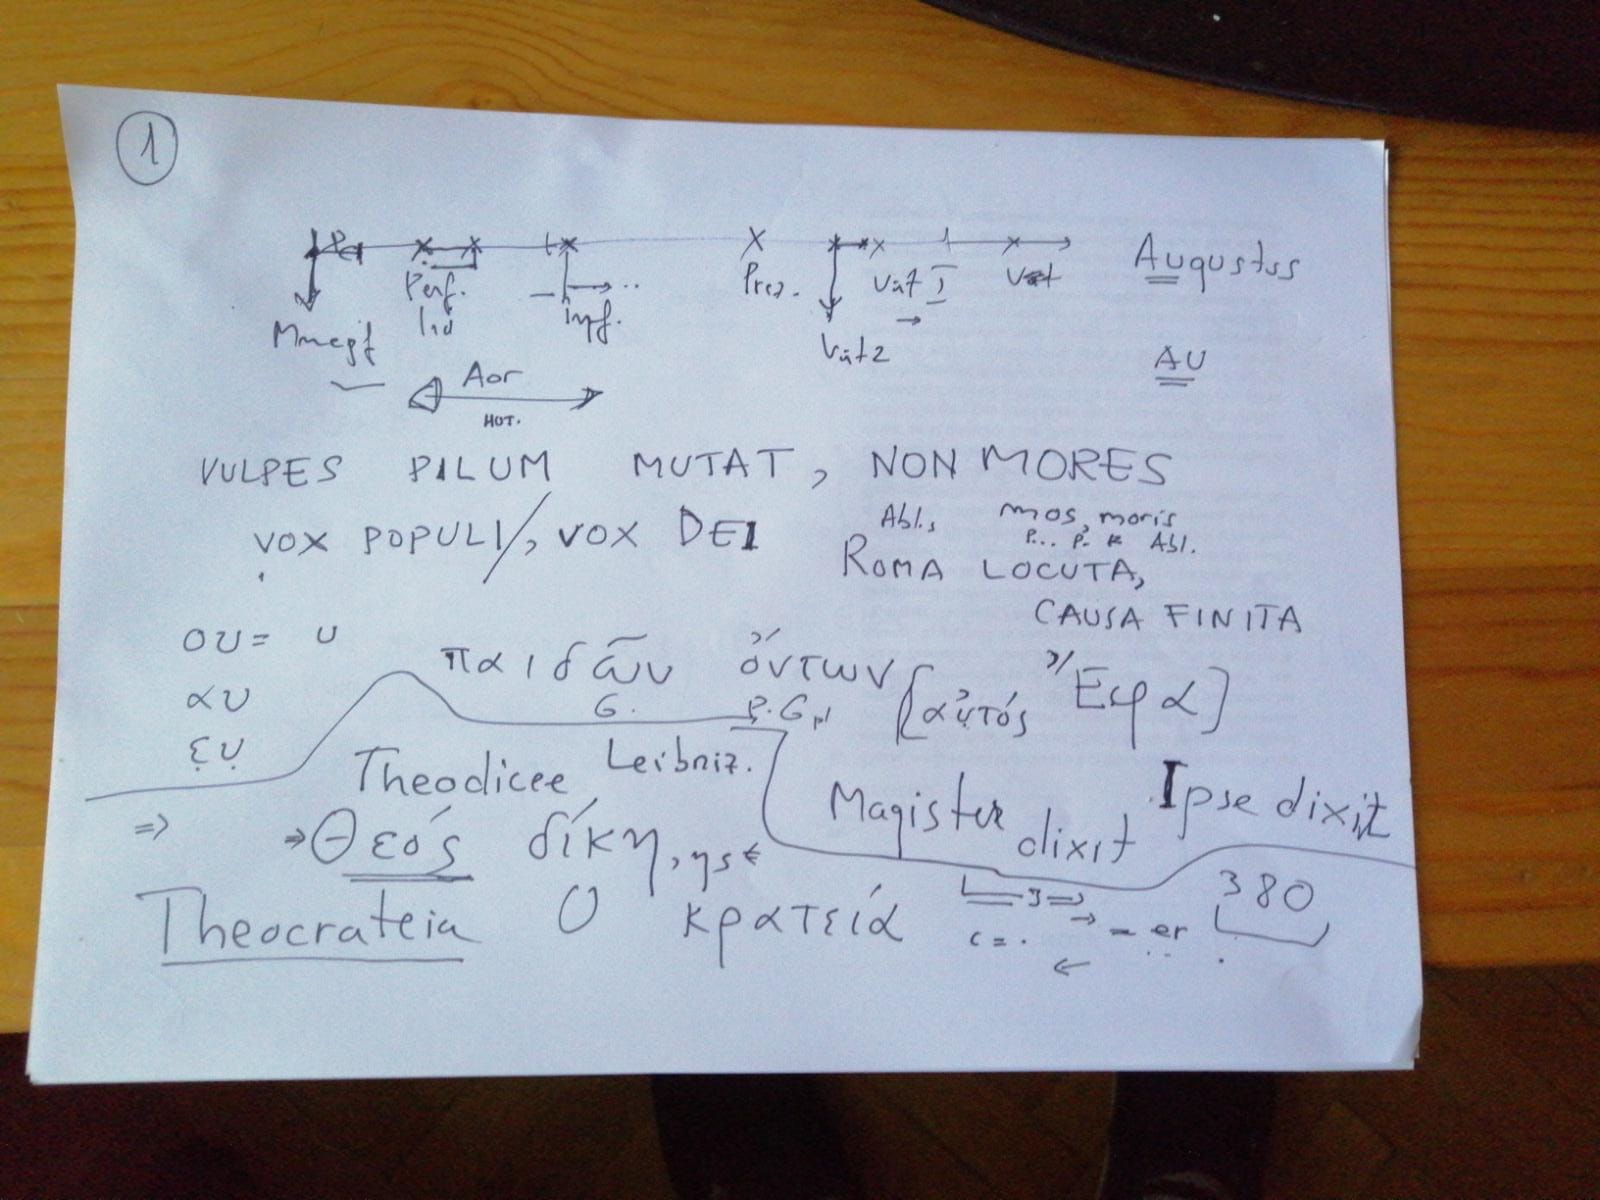 1
Augustus
Perf. Prez. Vūt I
Ind Impf.
Vūt 2 AU
Aor
VULPES PILUM MUTAT, NON MORES
Abl., mos, moris
VOX POPULI/, VOX DEI Abl.
ROMA LOCUTA,
CAUSA FINITA
ου = υ
παιδῶν ὄντων [αὐτός Ἔφα]
αυ G. P. G pl
ευ
Theodicee Leibniz.
Magister dixit Ipse dixit
⇒ ⇒ Θεός δίκη, ης
380
Theocrateia κρατεία
= er